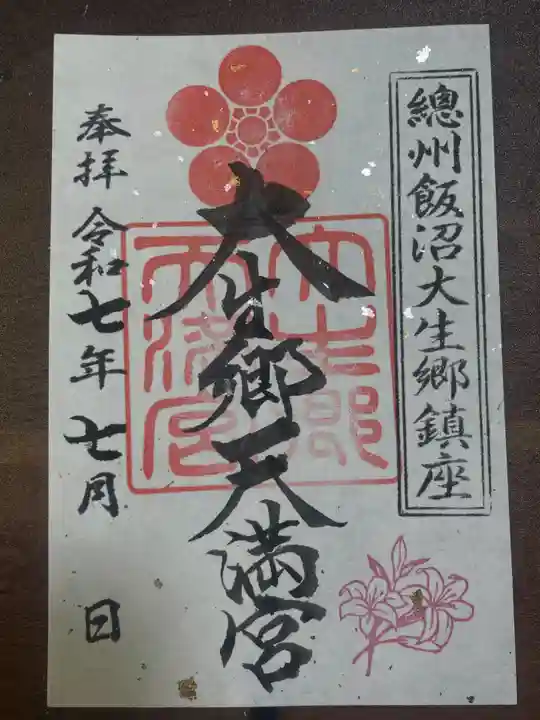 總州飯沼大生郷鎮座
大生郷天満宮
大生郷
天満宮
奉拝 令和七年七月 日